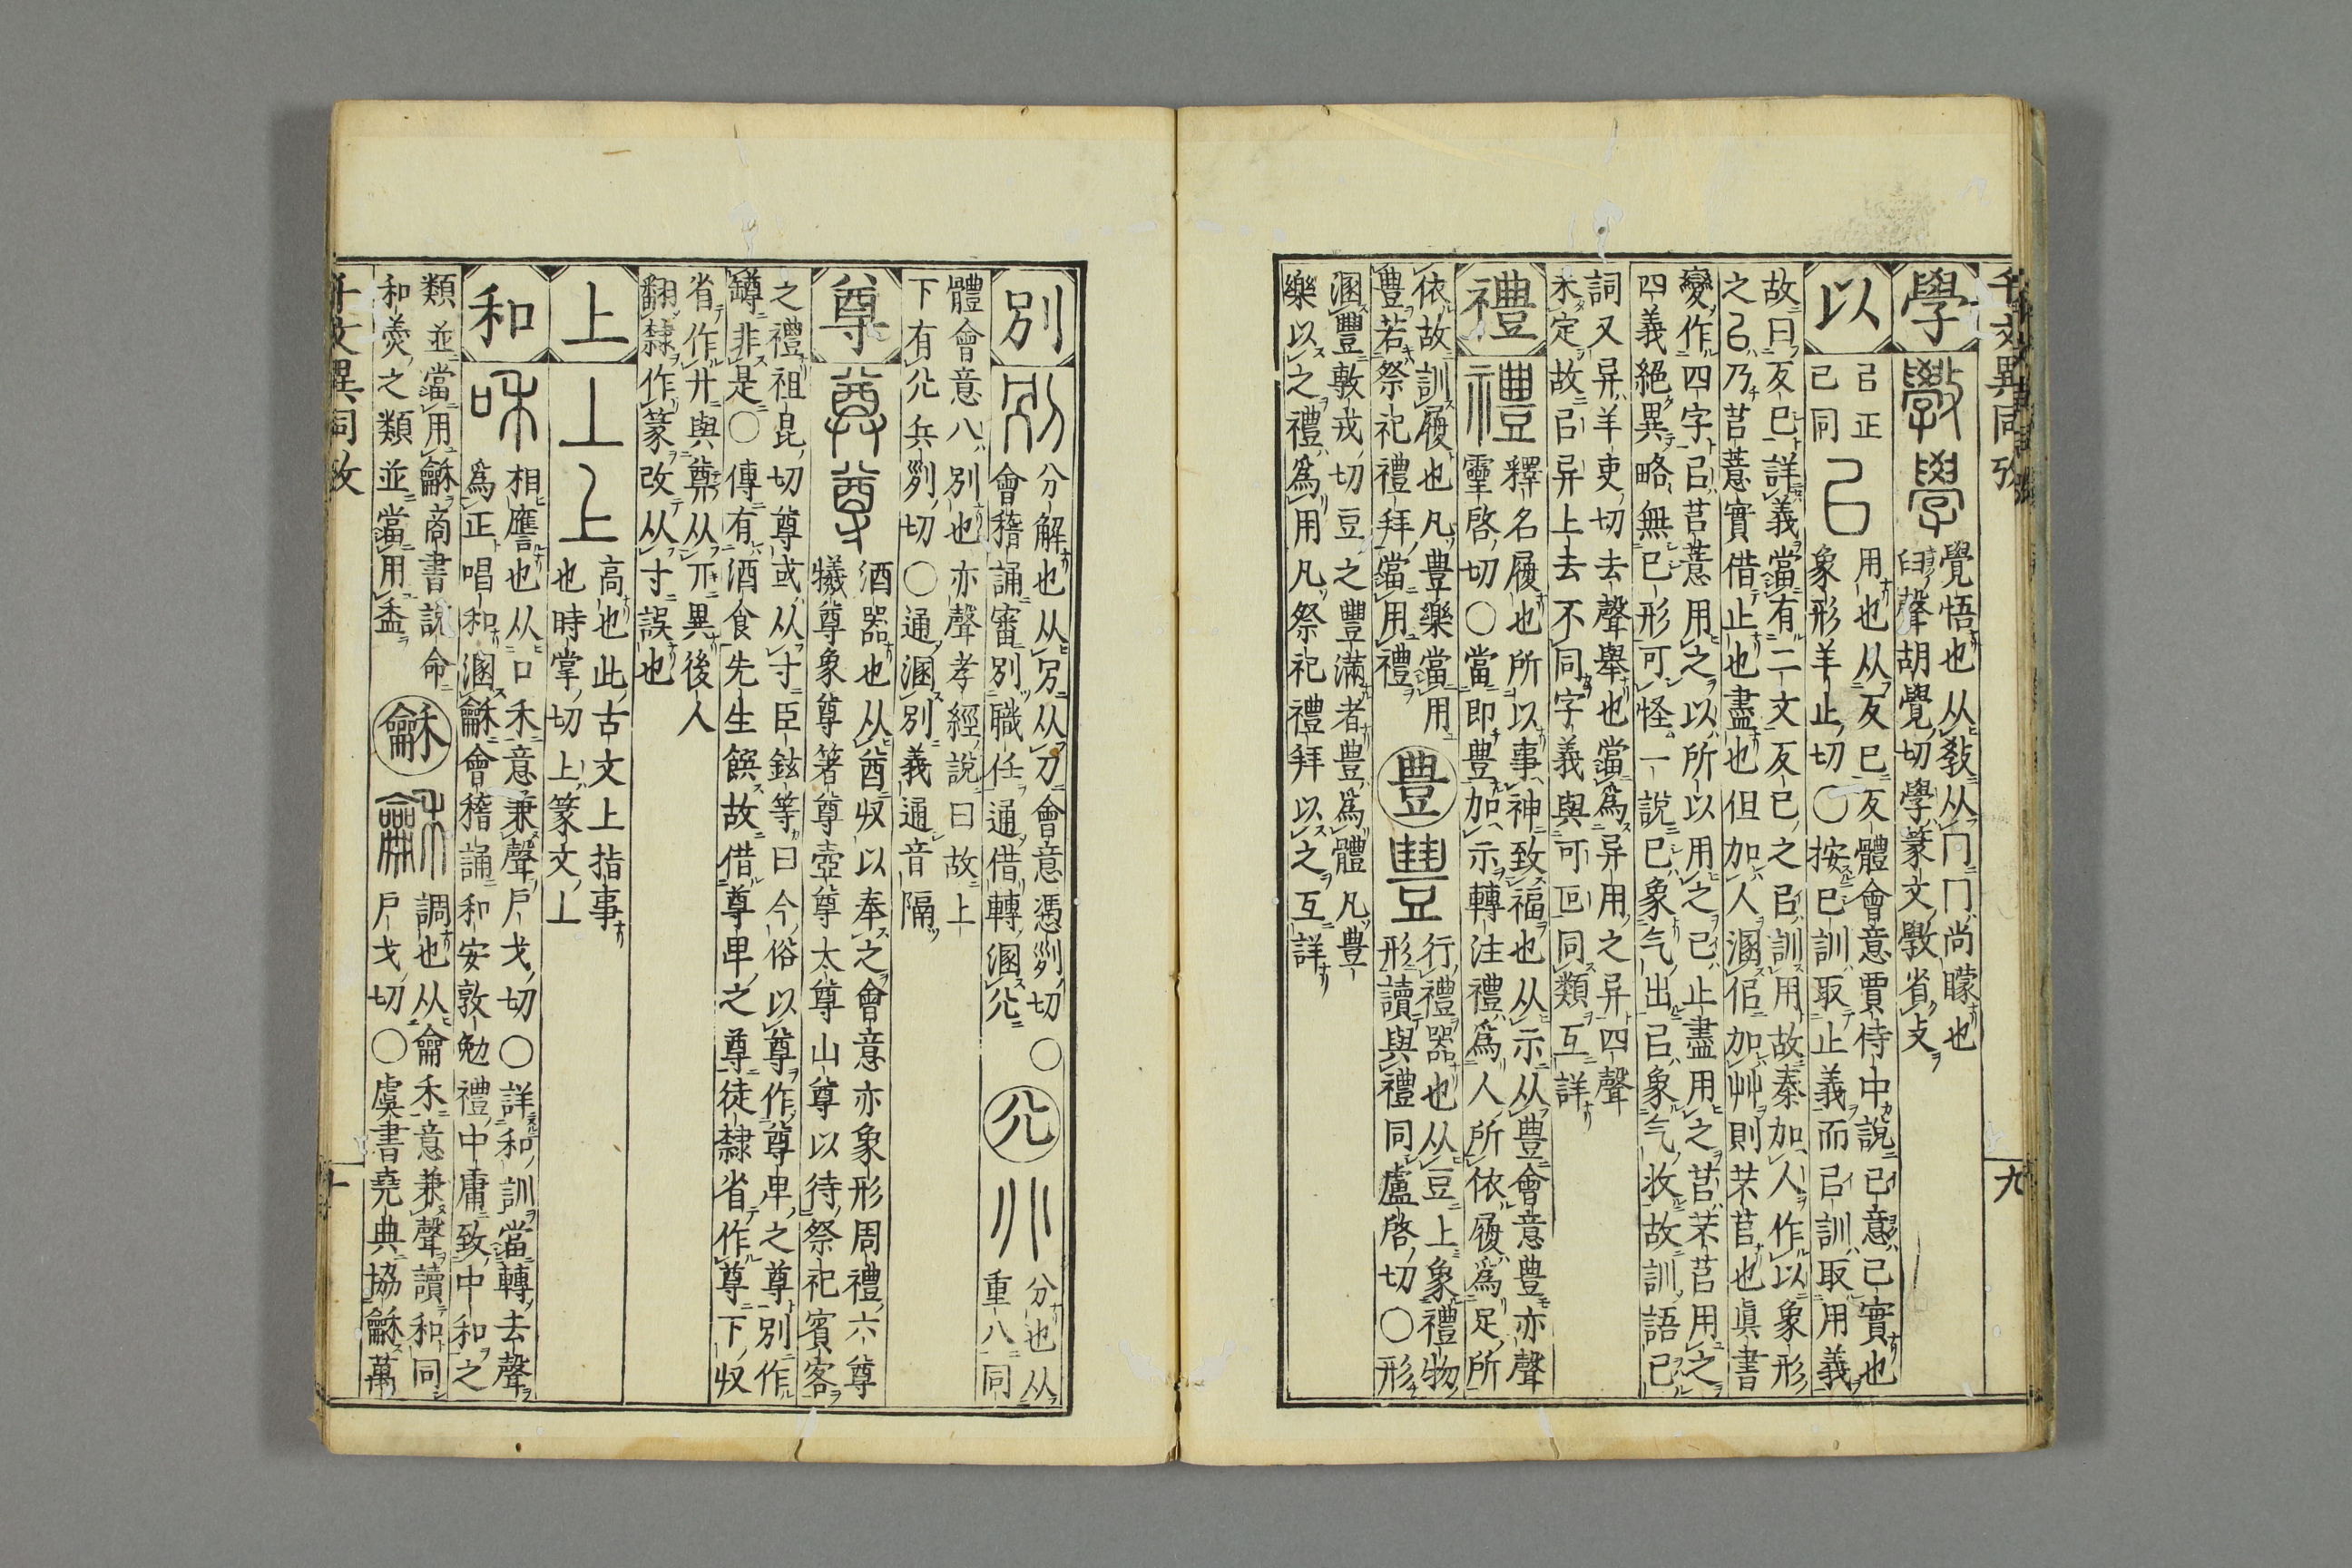 千文異同攷 九
學 覺悟也从敎从冂冂尚矇也
臼聲胡覺切學篆文斆省攴
以 㠯正 用也从反巳反體會意賈侍中說已意已實也
已同 象形羊止切〇按已訓取止義而㠯訓取用義
故曰反巳詳義當有二文反已之㠯訓用故秦加人作以象形
之㠯乃苢薏實借止也盡也但加人溷佀加艸則芣苢也眞書
變作四字㠯苢薏用之以所以用之已止盡用之苢芣苢用之
四義絕異略無已形可怪一說已象气出㠯象气收故訓語已
詞又异羊吏切去聲舉也當爲异用之异四聲
未定故㠯异上去不同字義與可叵同類互詳
禮 釋名履也所以事神致福也从示从豊會意豊亦聲
靈啓切〇當即豊加示轉注禮爲人所依履爲足所
依故訓履也凡豊樂當用
豊若祭祀禮拜當用禮
豊 行禮器也从豆上象禮物
形讀與禮同盧啓切〇形
溷豐敷戎切豆之豐滿者豊爲體凡豊
樂以之禮爲用凡祭祀禮拜以之互詳
別 分解也从冎从刀會意憑列切〇
會稽誦審別職任通借轉溷㕣
㕣 分也从
重八同
體會意八別也亦聲孝經說曰故上
下有㕣兵列切〇通溷別義通音隔
尊 酒器也从酋収以奉之會意亦象形周禮六尊
犧尊象尊著尊壺尊太尊山尊以待祭祀賓客
之禮祖昆切尊或从寸臣鉉等曰今俗以尊作尊卑之尊別作
罇非是〇傳有酒食先生饌故借尊卑之尊徒隸省作尊下収
省作廾與奠从丌異後人
翻隸作篆改从寸誤也
上 高也此古文上指事
也時掌切上篆文丄
和 相應也从口禾意兼聲戶戈切〇詳和訓當轉去聲
爲正唱和溷龢會稽誦和安敦勉禮中庸致中和之
類並當用龢商書說命
和羹之類並當用盉
龢 調也从龠禾意兼聲讀和同
戶戈切〇虞書堯典協龢萬
千文異同攷 十